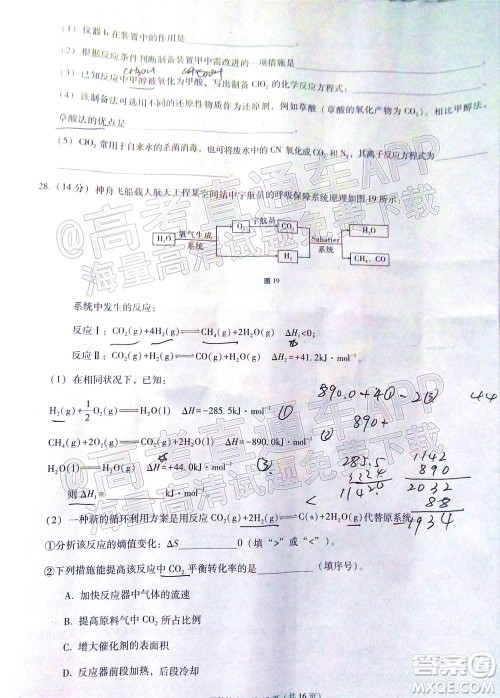 (1) 仪器 b 在装置中的作用是
(2) 根据反应条件判断制备装置甲中需改进的一项措施是
CH3OH HCOOH
(3) 已知反应中甲醇被氧化为甲酸，写出制备 ClO₂ 的化学反应方程式：
(4) 该制备法可选用不同的还原性物质作为还原剂，例如草酸（草酸的氧化产物为 CO₂）。相比甲醇法，
草酸法的优点是
(5) ClO₂ 常用于自来水的杀菌消毒，也可将废水中的 CN⁻氧化成 CO₂ 和 N₂，其离子反应方程式为
28. (14 分) 神舟飞船载人航天工程某空间站中宇航员的呼吸保障系统原理如图 19 所示：
宇航员
H₂O 氧气生成系统 O₂ CO₂ H₂ Sabatier系统 H₂O CH₄、CO
图 19
系统中发生的反应：
反应Ⅰ：CO₂(g)+4H₂(g)⇌CH₄(g)+2H₂O(g) ΔH₁<0；
反应Ⅱ：CO₂(g)+H₂(g)⇌CO(g)+H₂O(g) ΔH₂=+41.2kJ·mol⁻¹
(1) 在相同状况下，已知：
890.0+4①-2③ 44
H₂(g)+1/2 O₂(g)=H₂O(l) ΔH=-285.5kJ·mol⁻¹ ①
890+
CH₄(g)+2O₂(g)=CO₂(g)+2H₂O(l) ΔH=-890.0kJ·mol⁻¹ ②
H₂O(l)=H₂O(g) ΔH=+44.0kJ·mol⁻¹ ③
285.5 1142
890
1142.0 2032
88
1934
则 ΔH₁=
(2) 一种新的循环利用方案是用反应 CO₂(g)+2H₂(g)⇌C(s)+2H₂O(g)代替原系统。
①分析该反应的熵值变化：ΔS 0（填“>”或“<”）
②下列措施能提高该反应中 CO₂ 平衡转化率的是 （填序号）。
A. 加快反应器中气体的流速
B. 提高原料气中 CO₂ 所占比例
C. 增大催化剂的表面积
D. 反应器前段加热，后段冷却
（共 16 页）
@高考直通车APP
海量高清试题免费下载
答案圈
MXQE.COM